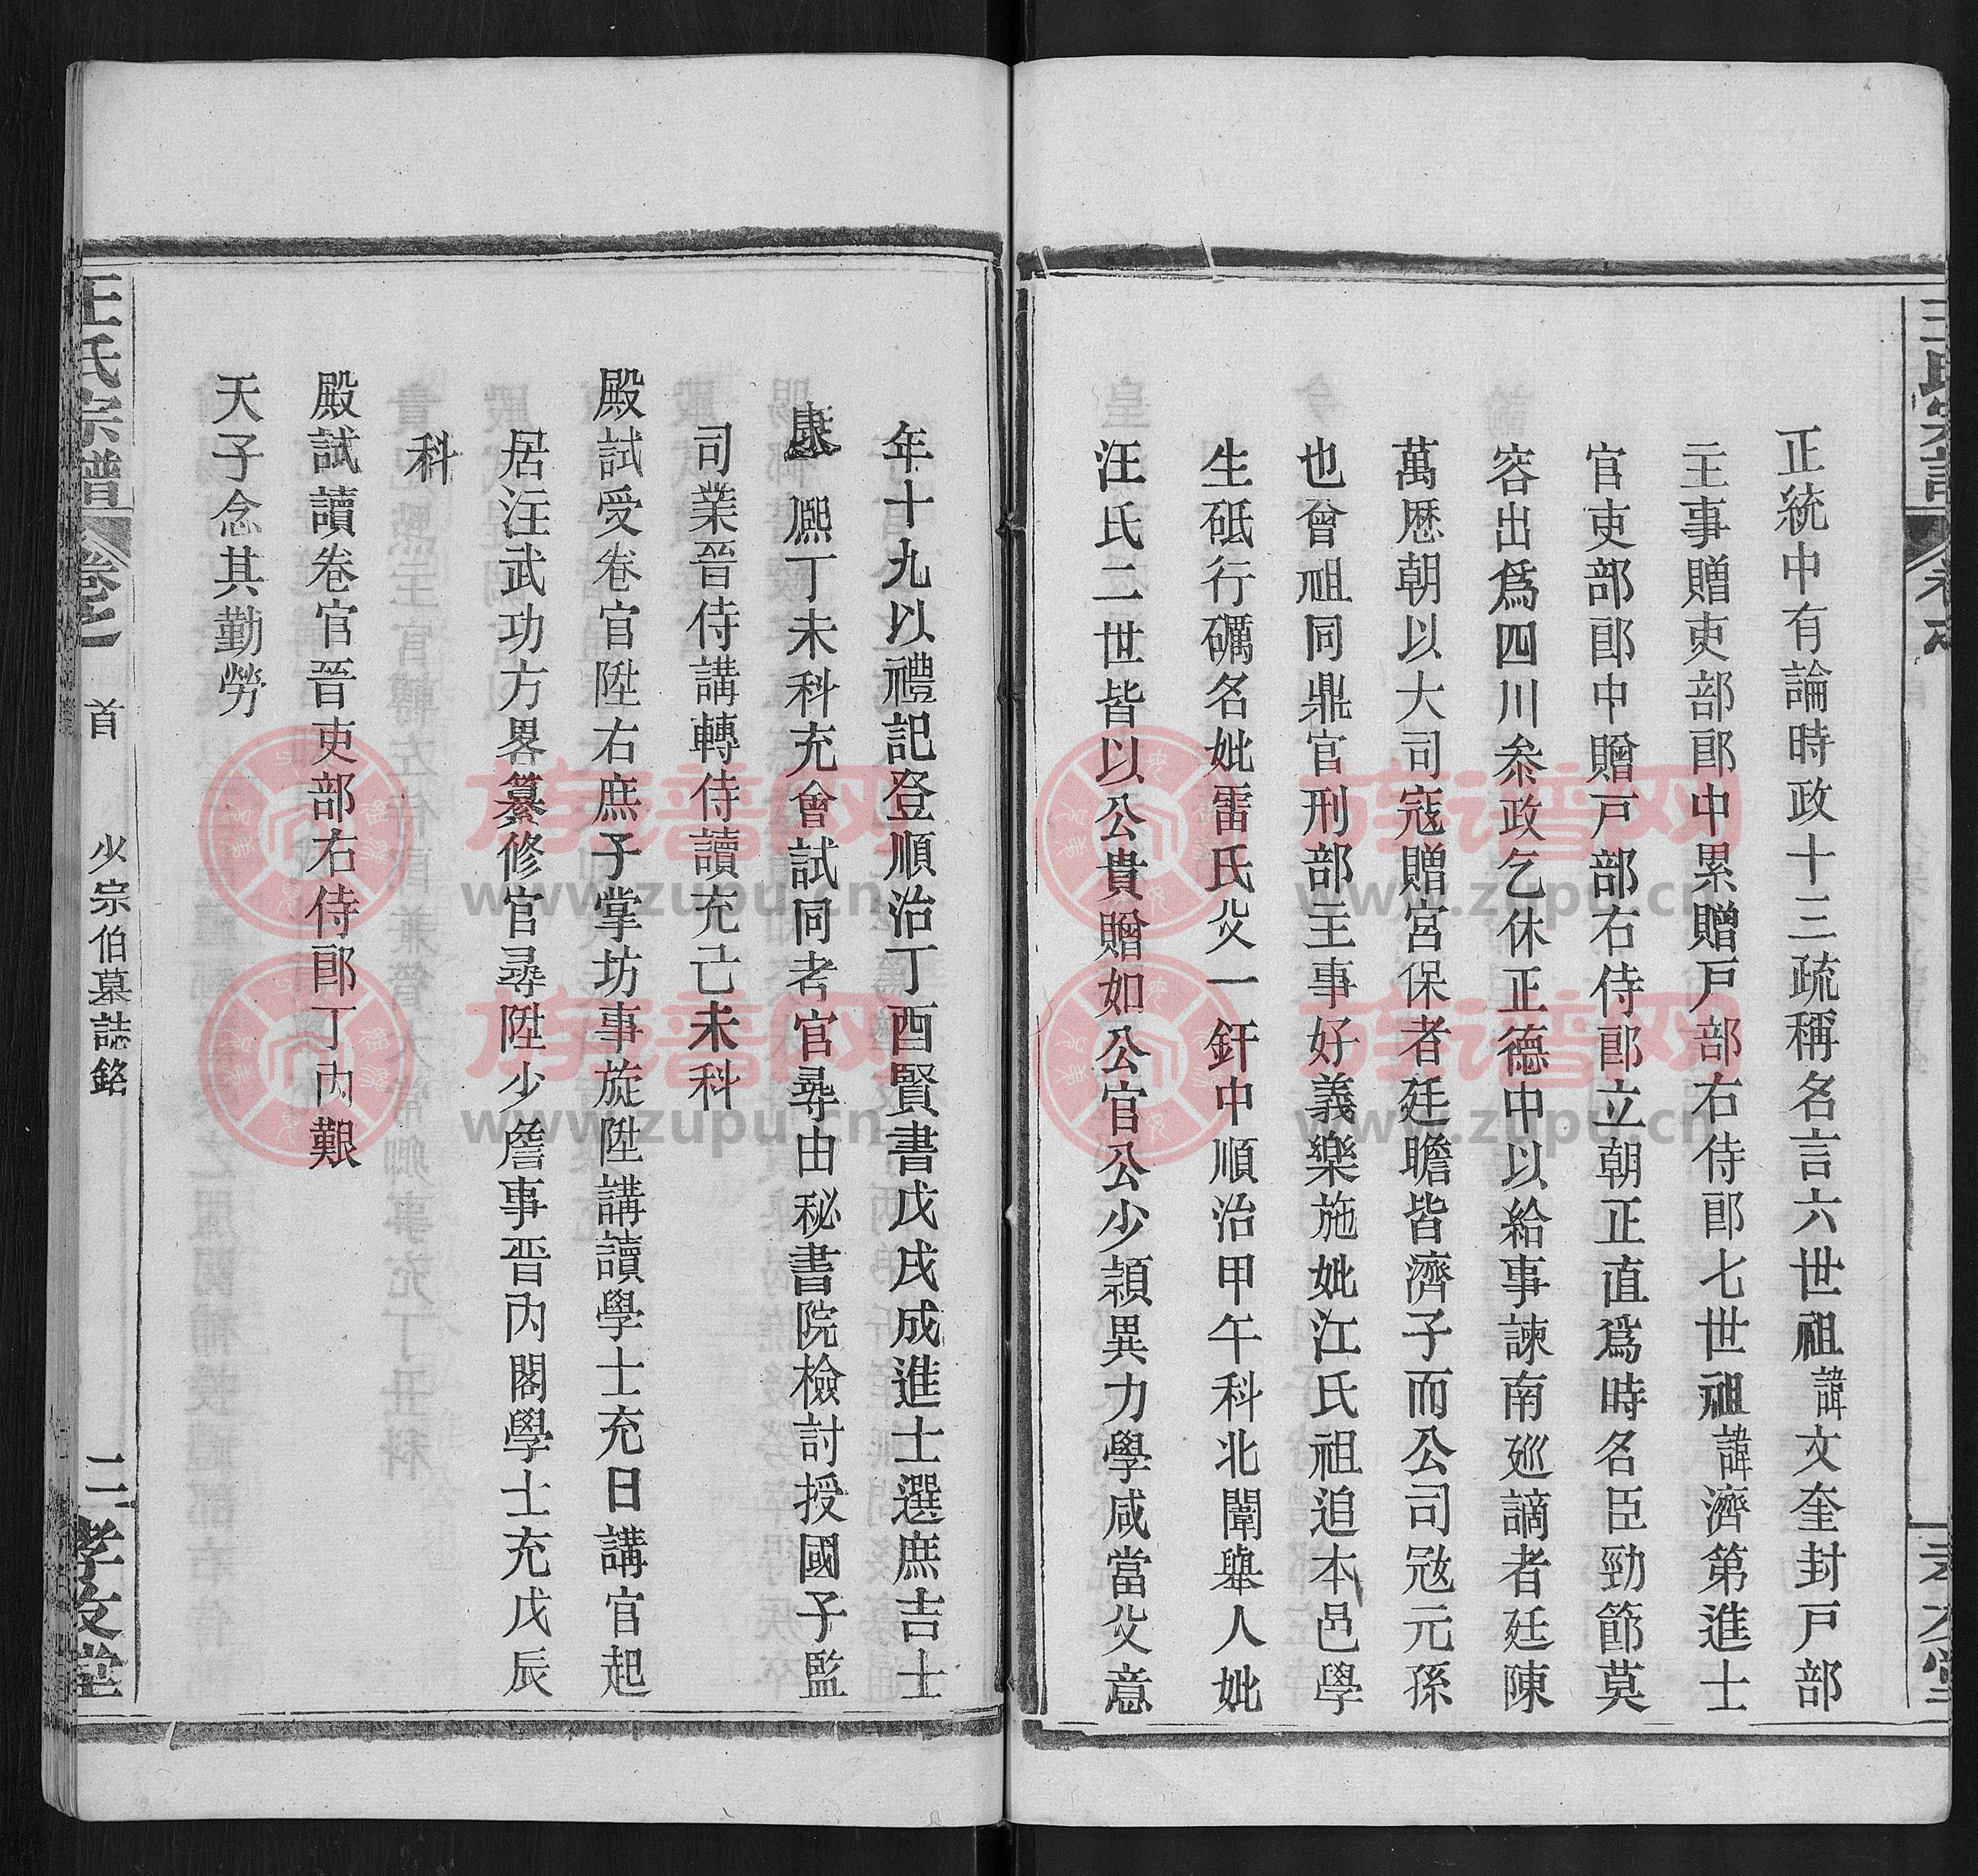 正統中有論時政十三疏稱名言六世祖諱文奎封戸部
主事贈吏部郎中累贈戸部右侍郎七世祖諱濟第進士
官吏部郎中贈戸部右侍郎立朝正直爲時名臣勁節莫
容出爲四川叅政乞休正德中以給事諫南廵謫者廷陳
萬歷朝以大司寇贈宮保者廷瞻皆濟子而公司寇元孫
也曾祖同鼎官刑部主事好義樂施妣江氏祖追本邑學
生砥行礪名妣雷氏父一釬中順治甲午科北闈舉人妣
汪氏二世皆以公貴贈如公官公少頴異力學咸當父意
年十九以禮記登順治丁酉賢書戊戌成進士選庶吉士
康熈丁未科充會試同考官尋由秘書院檢討授國子監
司業晉侍講轉侍讀充己未科
殿試受卷官陞右庶子掌坊事旋陞講讀學士充日講官起
居注武功方畧纂修官尋陞少詹事晋內閣學士充戊辰
科
殿試讀卷官晋吏部右侍郎丁內艱
天子念其勤勞
王氏宗譜 卷之 首 少宗伯墓誌銘 二 孝友堂
族谱网
www.zupu.cn
族谱网
www.zupu.cn
族谱网
www.zupu.cn
族谱网
www.zupu.cn